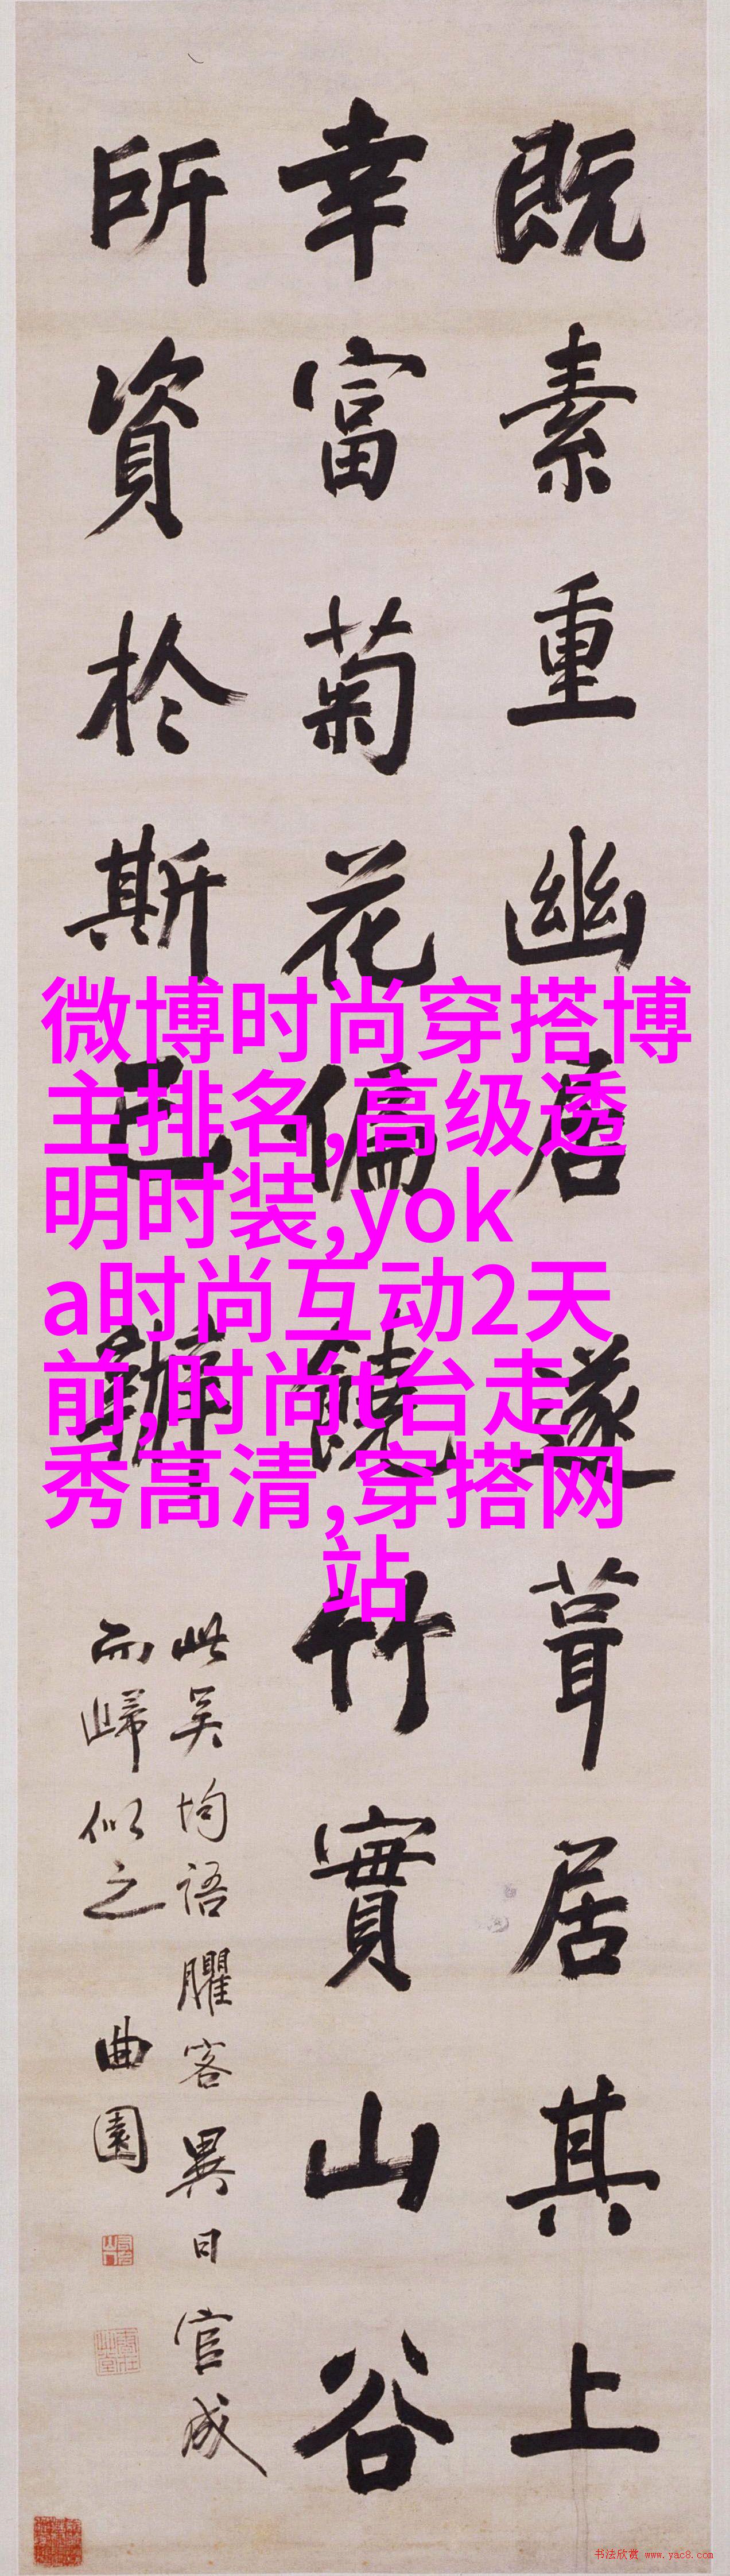 既素重幽居遂葺居其上
幸富菊花偏饒竹實山谷
所資於斯已辦
此吴均語臞客異日官成
而歸似之 曲園
微博时尚穿搭博
主排名,高级透
明时装,yok
a时尚互动2天
前,时尚t台走
秀高清,穿搭网
站
书法欣赏 www.yac8.com